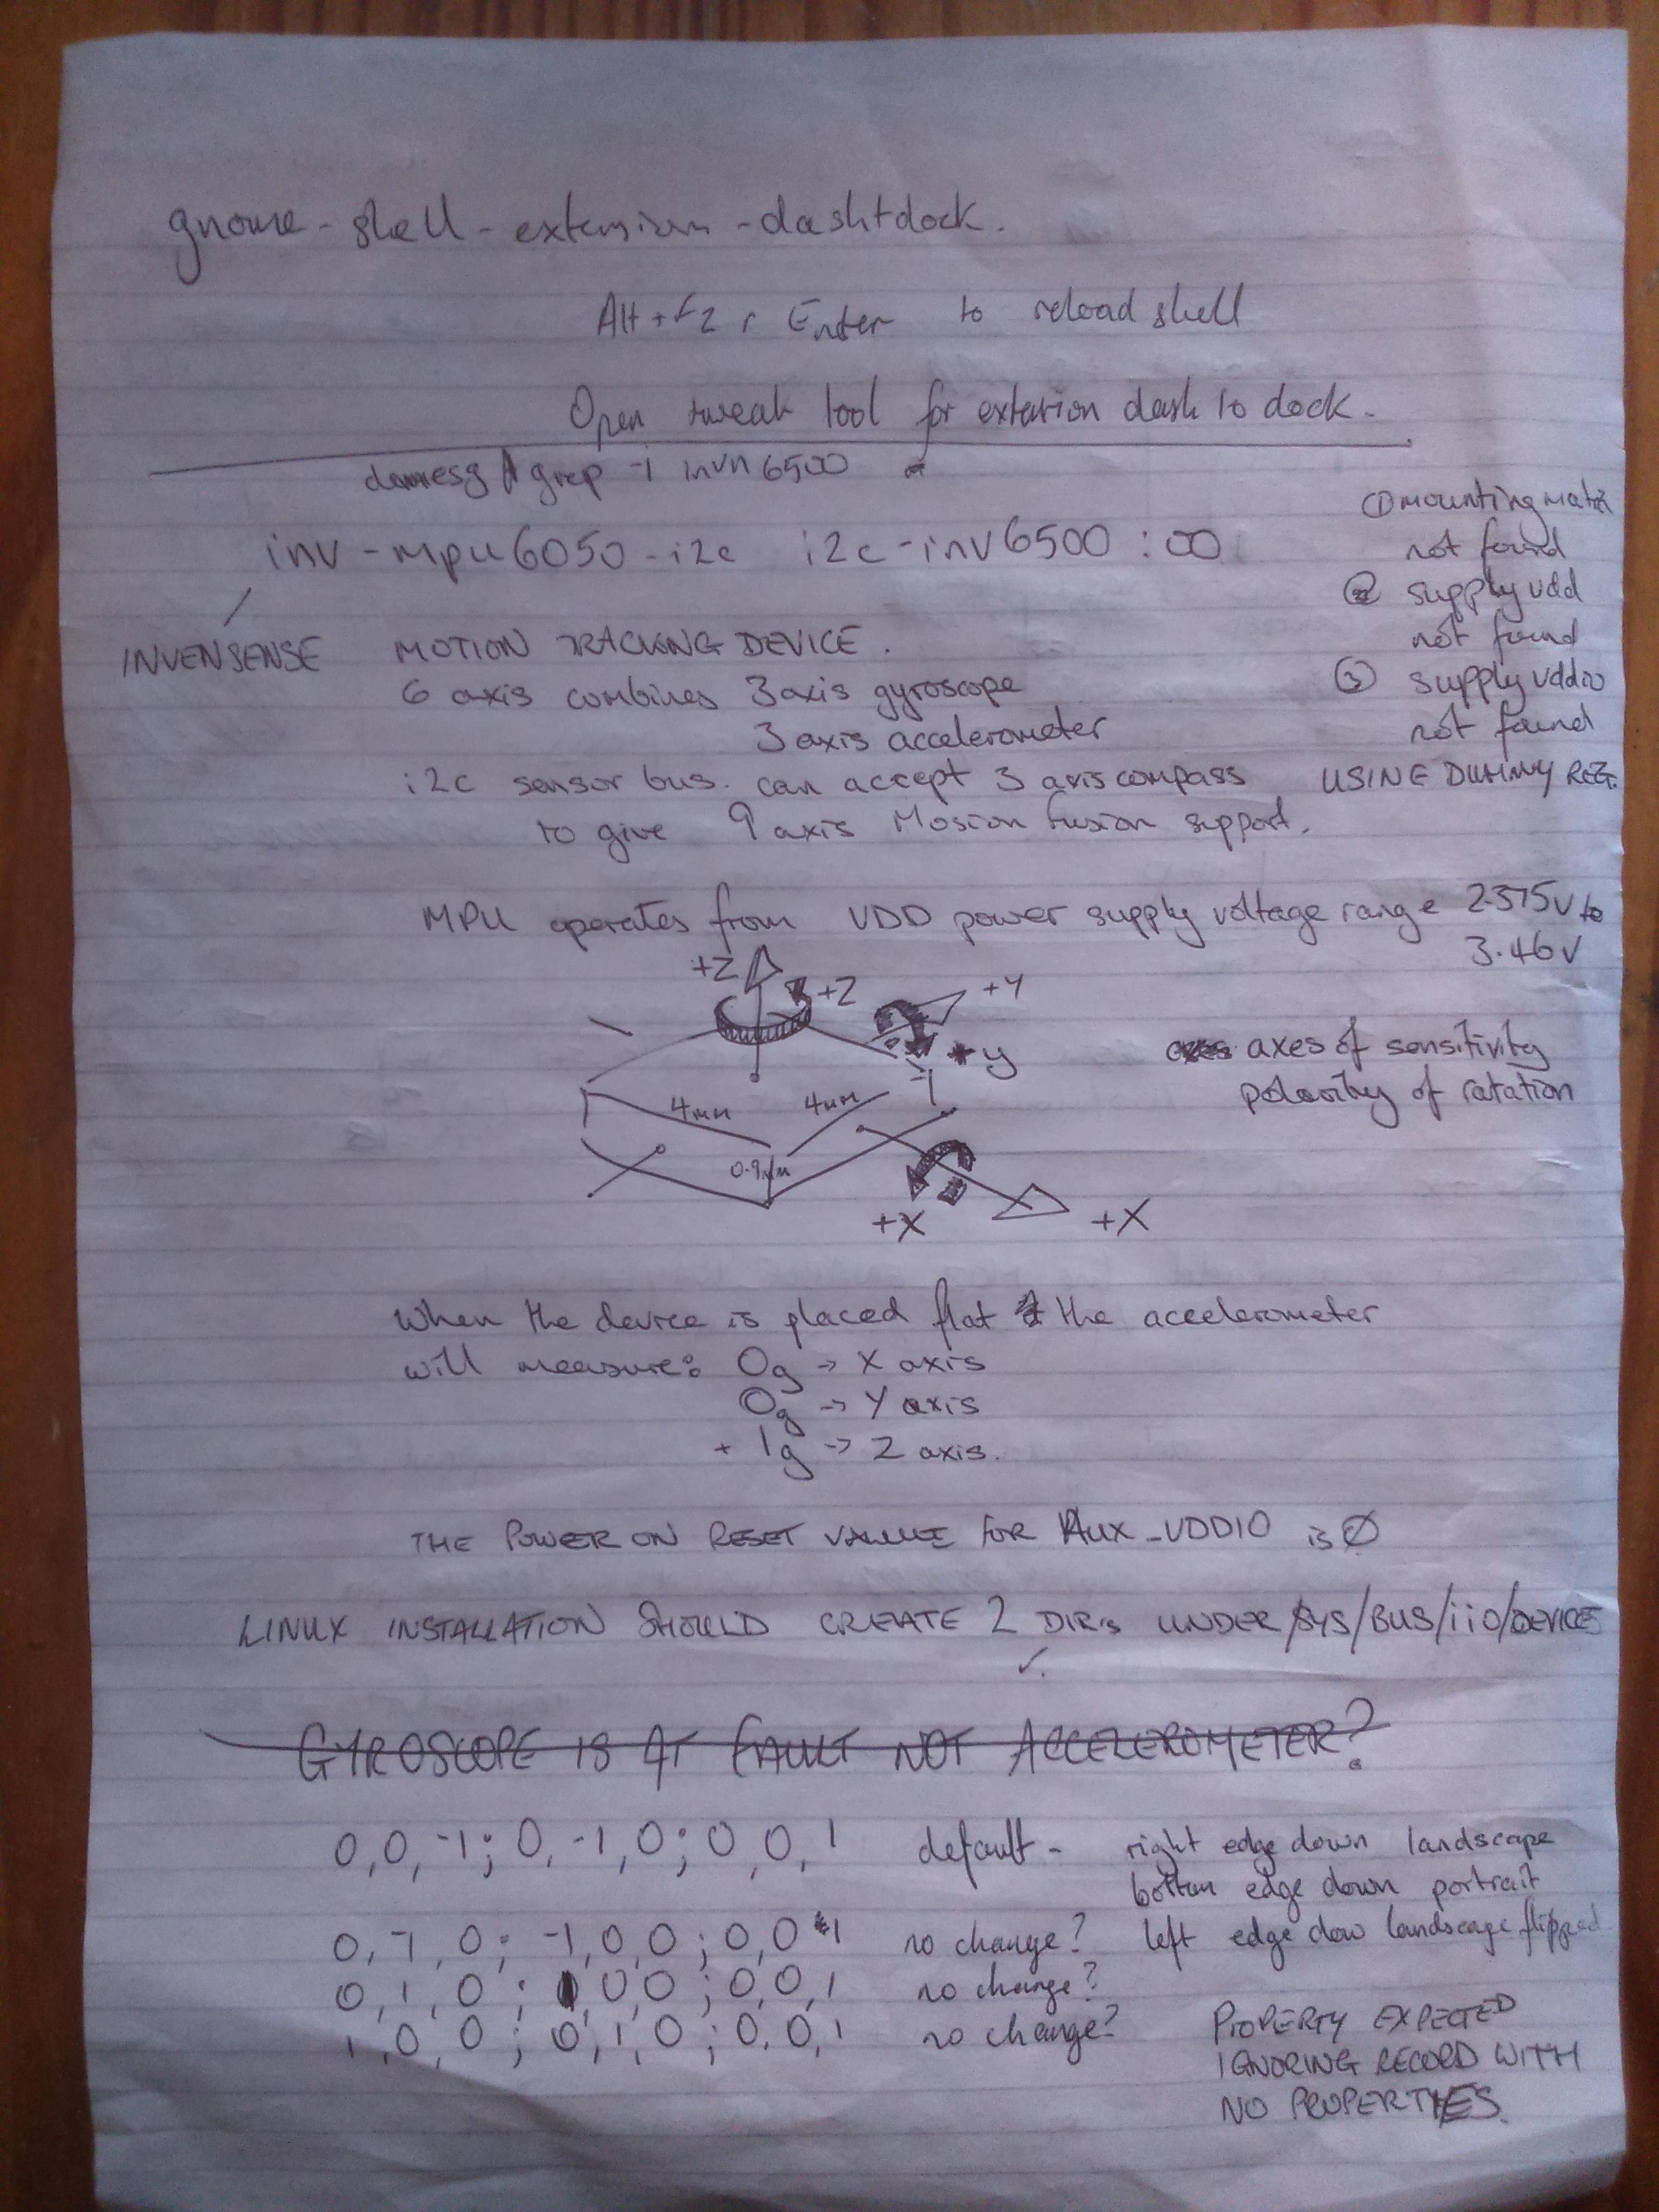 gnome-shell-extension-dashtdock.
Alt+F2 r Enter to reload shell
Open tweak tool for extension dash to dock.
dmesg | grep -i invn6500
inv-mpu6050-i2c i2c-inv6500:00
① mounting matrix
not found
② supply vdd
not found
③ supply vddio
not found
USING DUMMY REG.
INVENSENSE MOTION TRACKING DEVICE.
6 axis combines 3 axis gyroscope
3 axis accelerometer
i2c sensor bus. can accept 3 axis compass
to give 9 axis Motion fusion support.
MPU operates from VDD power supply voltage range 2.375V to
3.46V
+Z
+Z
+Y
+y
axes of sensitivity
polarity of rotation
4mm
4mm
0.9mm
+X
+X
When the device is placed flat the accelerometer
will measure: 0g → X axis
0g → Y axis
+ 1g → Z axis.
THE POWER ON RESET VALUE FOR AUX_VDDIO is Ø
LINUX INSTALLATION SHOULD CREATE 2 DIRs UNDER /SYS/BUS/iio/DEVICES
✓.
GYROSCOPE IS AT FAULT NOT ACCELEROMETER?
0,0,-1; 0,-1,0; 0,0,1 default - right edge down landscape
bottom edge down portrait
0,-1,0; -1,0,0; 0,0 1 no change? left edge dow landscage flipped
0,1,0; 1,0,0; 0,0,1 no change?
1,0,0; 0,1,0; 0,0,1 no change?
PROPERTY EXPECTED
IGNORING RECORD WITH
NO PROPERTIES.